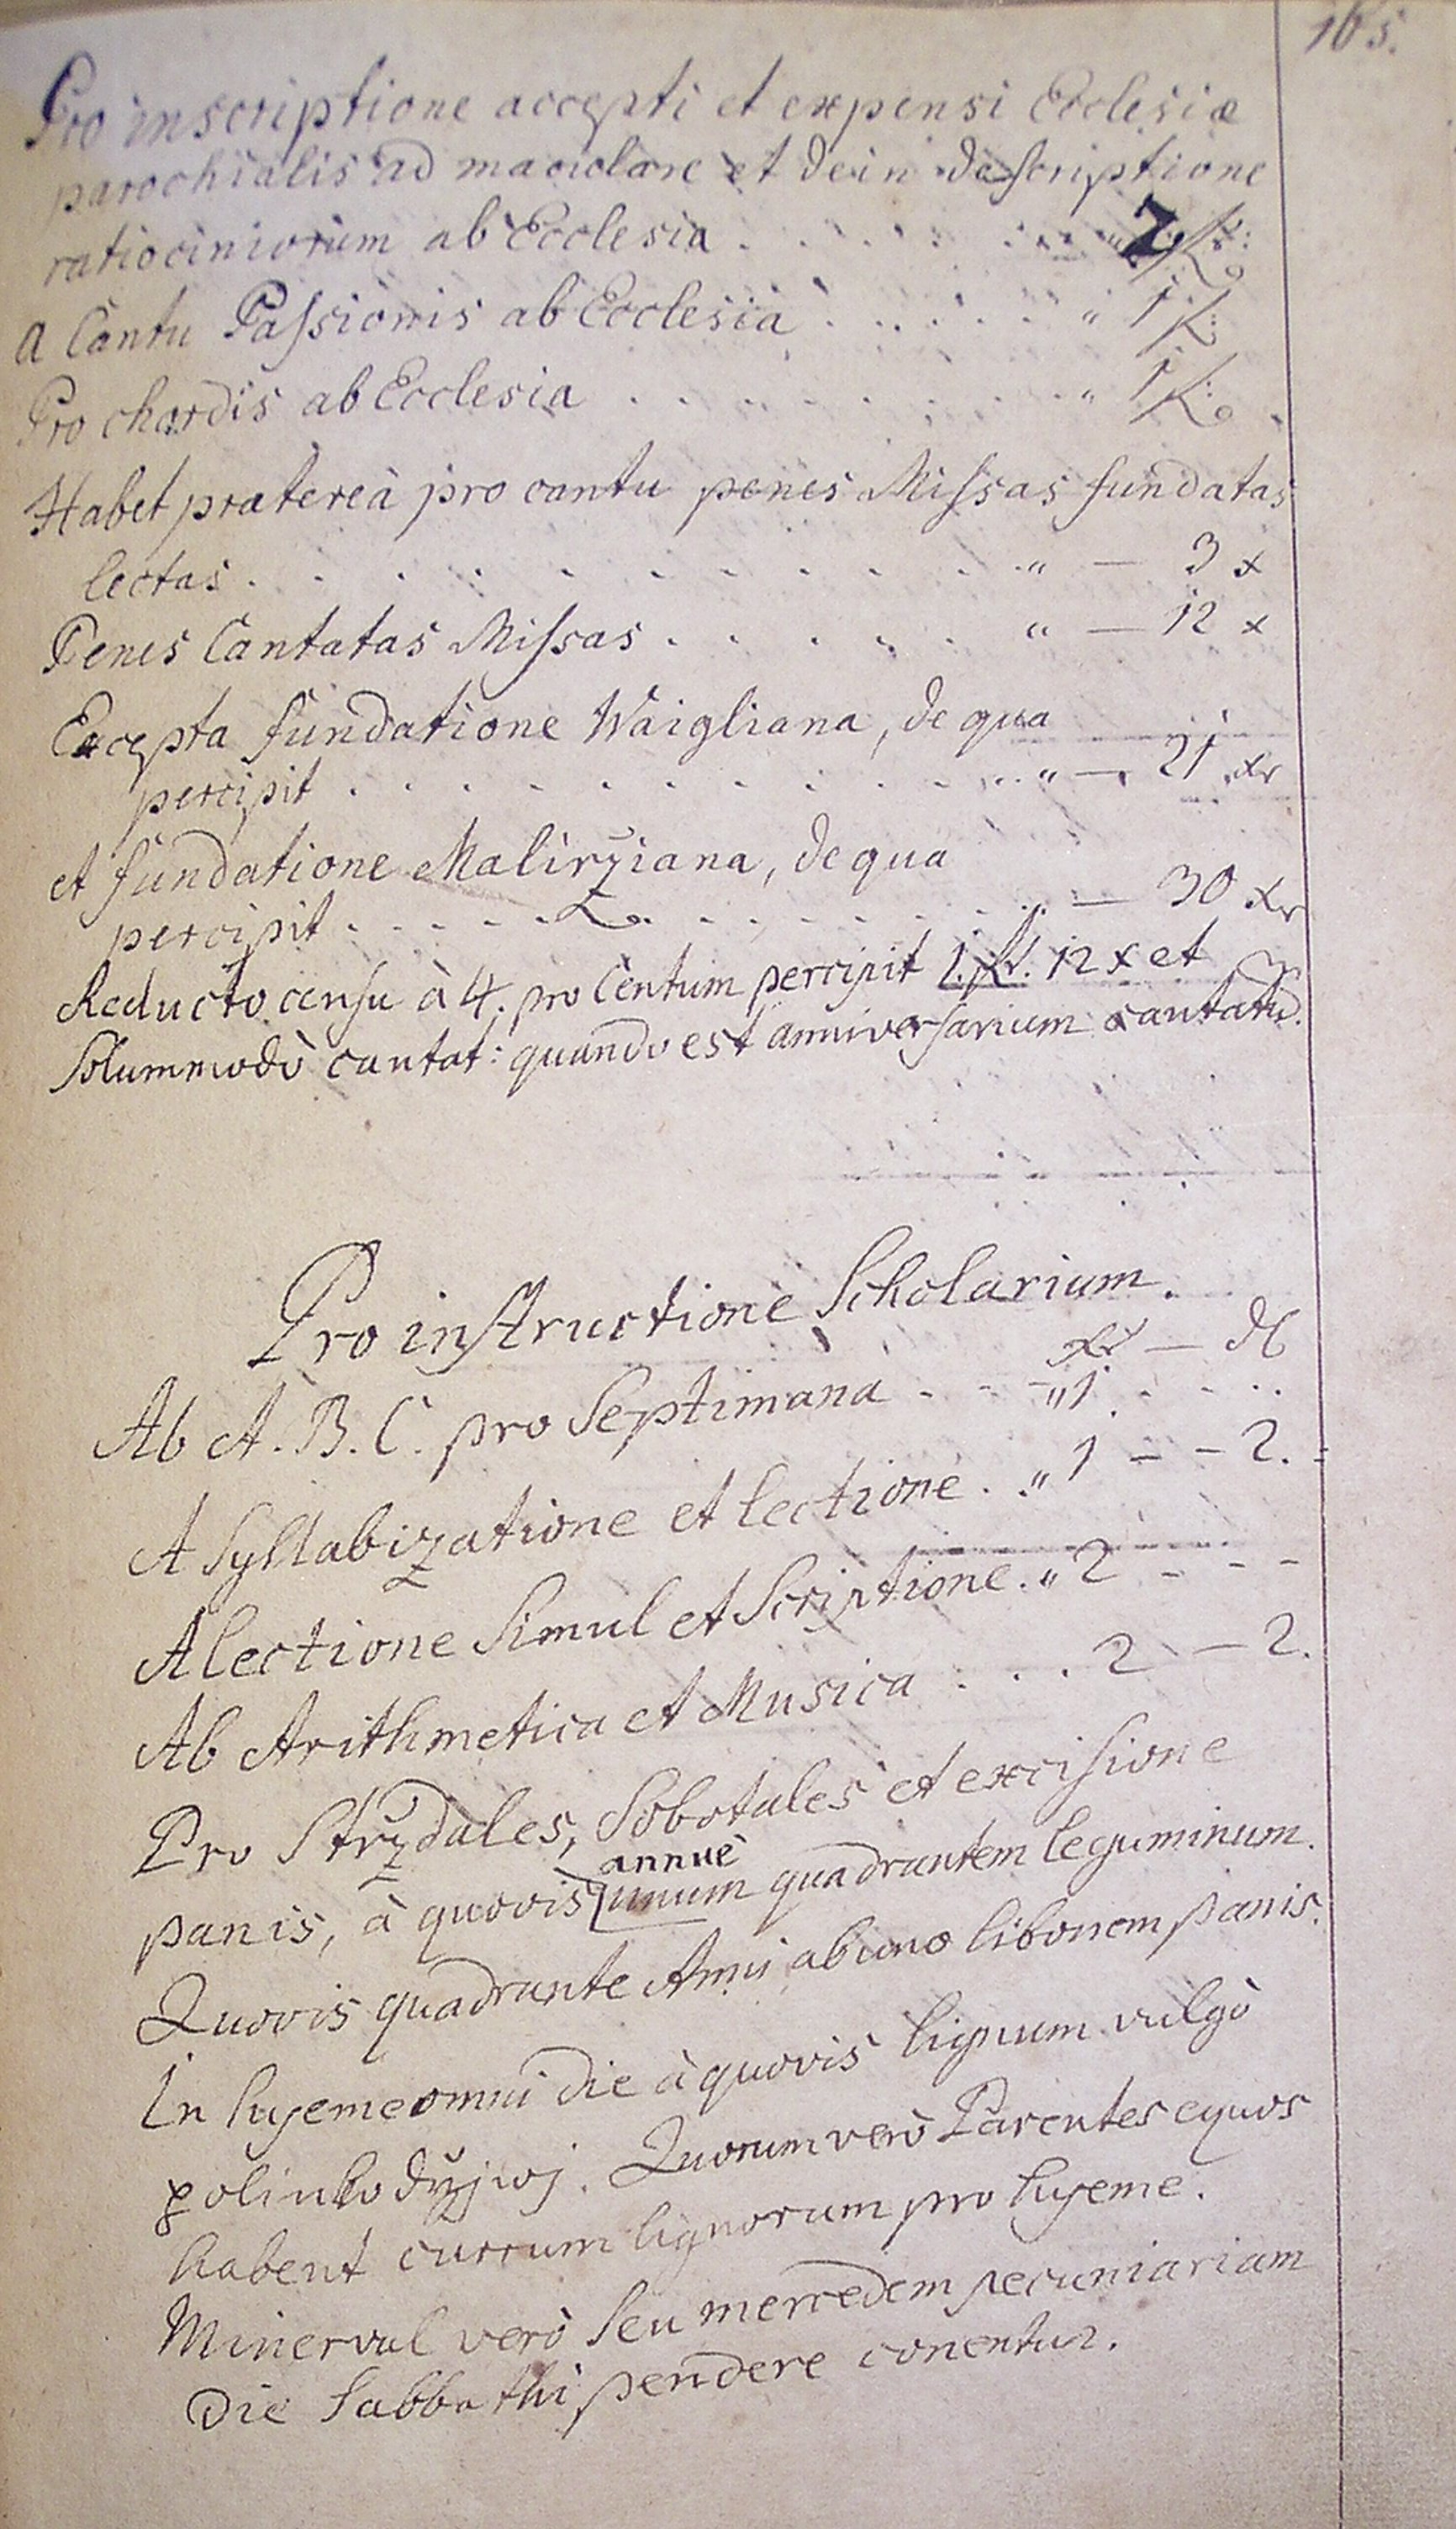 165.
Pro inscriptione accepti et expensi Ecclesiæ
parochialis ad maculare et dein descriptione
ratiociniorum ab Ecclesia . . . . . . . „ 2 f:
A Cantu Passionis ab Ecclesia . . . . . . „ 1 f:
Pro chordis ab Ecclesia . . . . . . . . „ 1 f:
Habet prætereà pro cantu penes Missas fundatas
lectas . . . . . . . . . . „ — 3 x
Penes Cantatas Missas . . . . . „ — 12 x
Excepta fundatione Waigliana, de qua
percipit . . . . . . . . . . „ — 21 xr
et fundatione Malirziana, de qua
percipit . . . . . . . . . . — 30 xr
Reducto censu à 4. pro Centum percipit 1. fl. 12 x et
Solummodò cantat: quando est anniversarium cantatū.
Pro instructione Scholarium.
xr — d
Ab A. B. C. pro Septimana . . . „ 1 . . . .
A Syllabizatione et lectione . „ 1 – – 2.
A lectione Simul et Scriptione . „ 2 – – –
Ab Arithmetica et Musica . . . 2 — 2.
Pro Strzdales, Sobotales et excisione
annuè
panis, à quovis unum quadrantem leguminum.
Quovis quadrante Anni ab uno libonem panis.
In hyeme omni die à quovis lignum vulgò
polinko držjwj. Quorum verò Parentes equos
habent currum lignorum pro hyeme.
Minerval verò seu mercedem pecuniariam
Die Sabbathi pendere conentur.